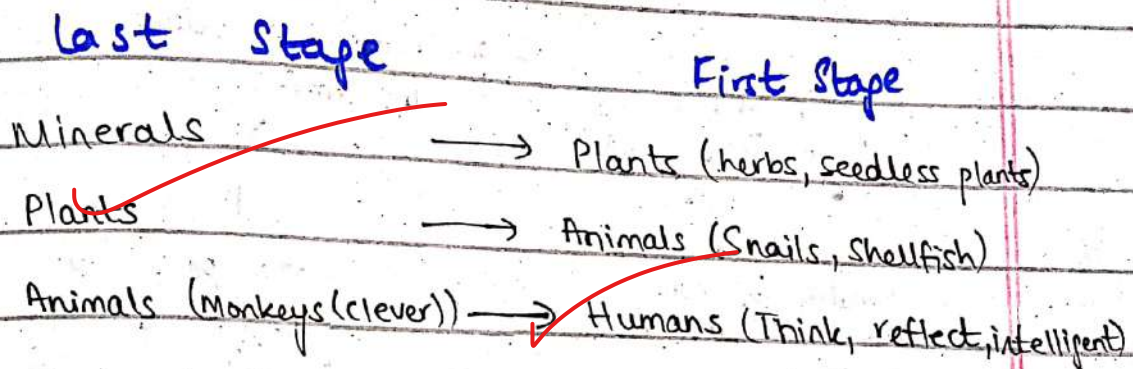 Last Stage First Stage
Minerals → Plants (herbs, seedless plants)
Plants → Animals (Snails, Shellfish)
Animals (Monkeys(clever)) → Humans (Think, reflect, intelligent)